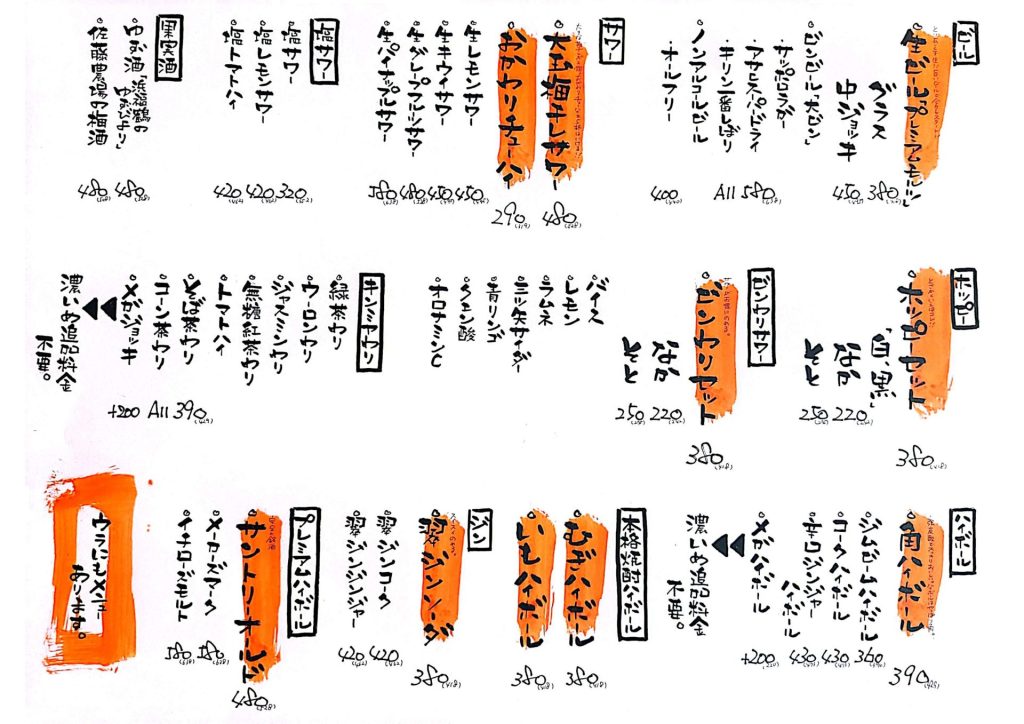 ビール
生ビール「プレミアムモルツ」
グラス 380
中ジョッキ 450
ビンビール・大ビン
・サッポロラガー
・アサヒスーパードライ
・キリン一番しぼり
All 580
ノンアルコールビール
・オールフリー
400
サワー
大生梅干しサワー 480
おかわりチューハイ 290
生レモンサワー 450
生キウイサワー 450
生グレープフルーツサワー 480
生パイナップルサワー 580
塩サワー
塩サワー 320
塩レモンサワー 420
塩トマトハイ 420
果実酒
ゆず酒「浜福鶴のゆずびより」 480
佐藤農場の梅酒 480
ホッピー
ホッピーセット 380
「白、黒」
なか 220
そと 250
ビンワリサワー
ビンワリセット 380
なか 220
そと 250
バイス
レモン
ラムネ
三ツ矢サイダー
青リンゴ
クエン酸
オロナミンC
キンミヤワリ
緑茶ワリ
ウーロンワリ
ジャスミンワリ
無糖紅茶ワリ
トマトハイ
そば茶ワリ
コーン茶ワリ
All 390
メガジョッキ +200
濃いめ追加料金
不要。
ハイボール
角ハイボール 390
ジムビームハイボール 360
コークハイボール 430
辛口ジンジャーハイボール 430
メガハイボール +200
濃いめ追加料金
不要。
本格焼酎ハイボール
むぎハイボール 380
いもハイボール 380
ジン
翠ジンソーダ 380
翠ジンコーク 420
翠ジンジンジャー 420
プレミアムハイボール
サントリーオールド 480
メーカーズマーク 580
イチローズモルト 580
ウラにもメニュー
あります。